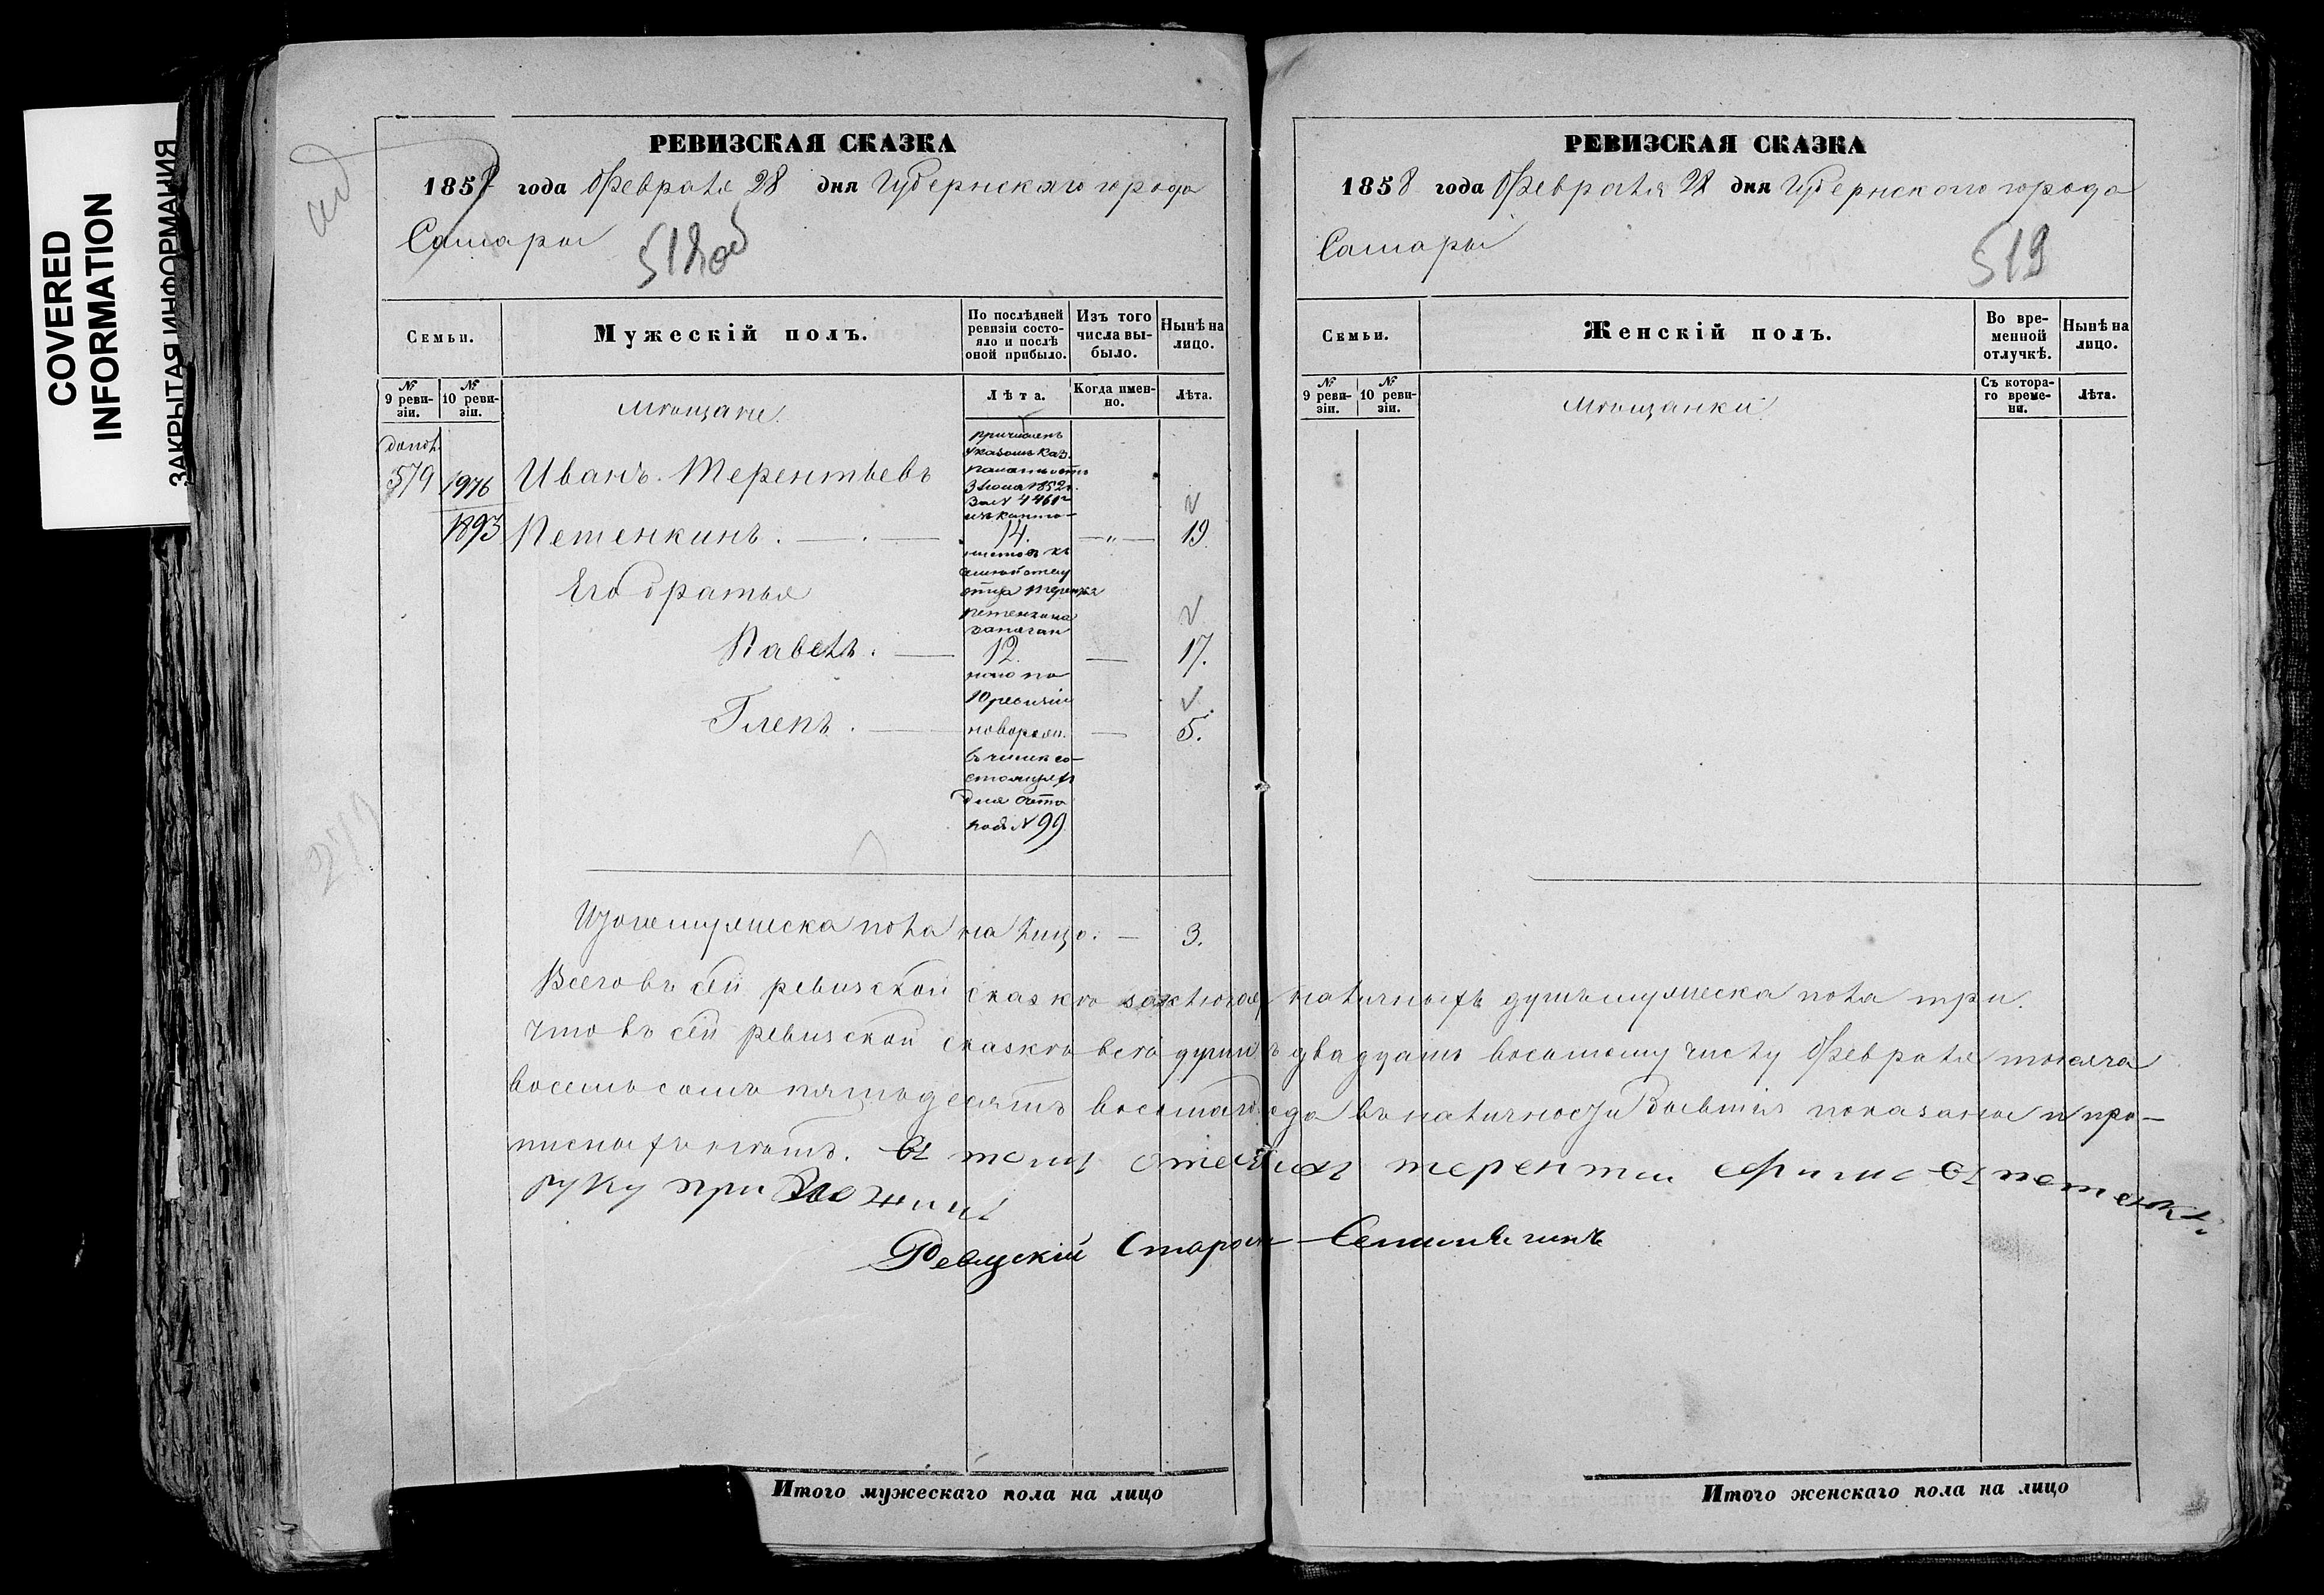 COVERED
INFORMATION
ЗАКРЫТАЯ ИНФОРМАЦИЯ
РЕВИЗСКАЯ СКАЗКА
1858 года Февраля 28 дня Губернскаго города
Самары
518об
Семьи.
Мужескій полъ.
По послѣдней ревизіи состояло и послѣ оной прибыло.
Изъ того числа выбыло.
Нынѣ на лицо.
№ 9 ревизіи.
№ 10 ревизіи.
Мѣщане.
Лѣта.
Когда именно.
Лѣта.
допол.
579 1976 Иванъ Терентьевъ
1893 Петенкинъ. 14. — „ — 19.
Его братья
Павелъ. — 12. — 17.
Глепъ. — новорож. — 5.
причисленъ
указомъ Каз.
3 Іюня 1852 г.
За № 4461
отца
Петенкина
10 ревизіи
подъ № 99
Итого мужеска пола на лицо. — 3.
Всего въ сей ревизской сказкѣ наличныхъ душъ мужеска пола три.
Что въ сей ревизской сказкѣ всѣ души къ двадцать восьмому числу Февраля тысяча
восемь сотъ пятьдесятъ восьмаго года въ наличности бывшія показаны и про-
писныхъ нѣтъ. отецъ ихъ терентей петенки
руку приложилъ
Ревизскій Староста
РЕВИЗСКАЯ СКАЗКА
1858 года Февраля 28 дня Губернскаго города
Самары
519
Семьи.
Женскій полъ.
Во временной отлучкѣ.
Нынѣ на лицо.
№ 9 ревизіи.
№ 10 ревизіи.
Мѣщанки.
Съ котораго времени.
Лѣта.
Итого мужескаго пола на лицо
Итого женскаго пола на лицо